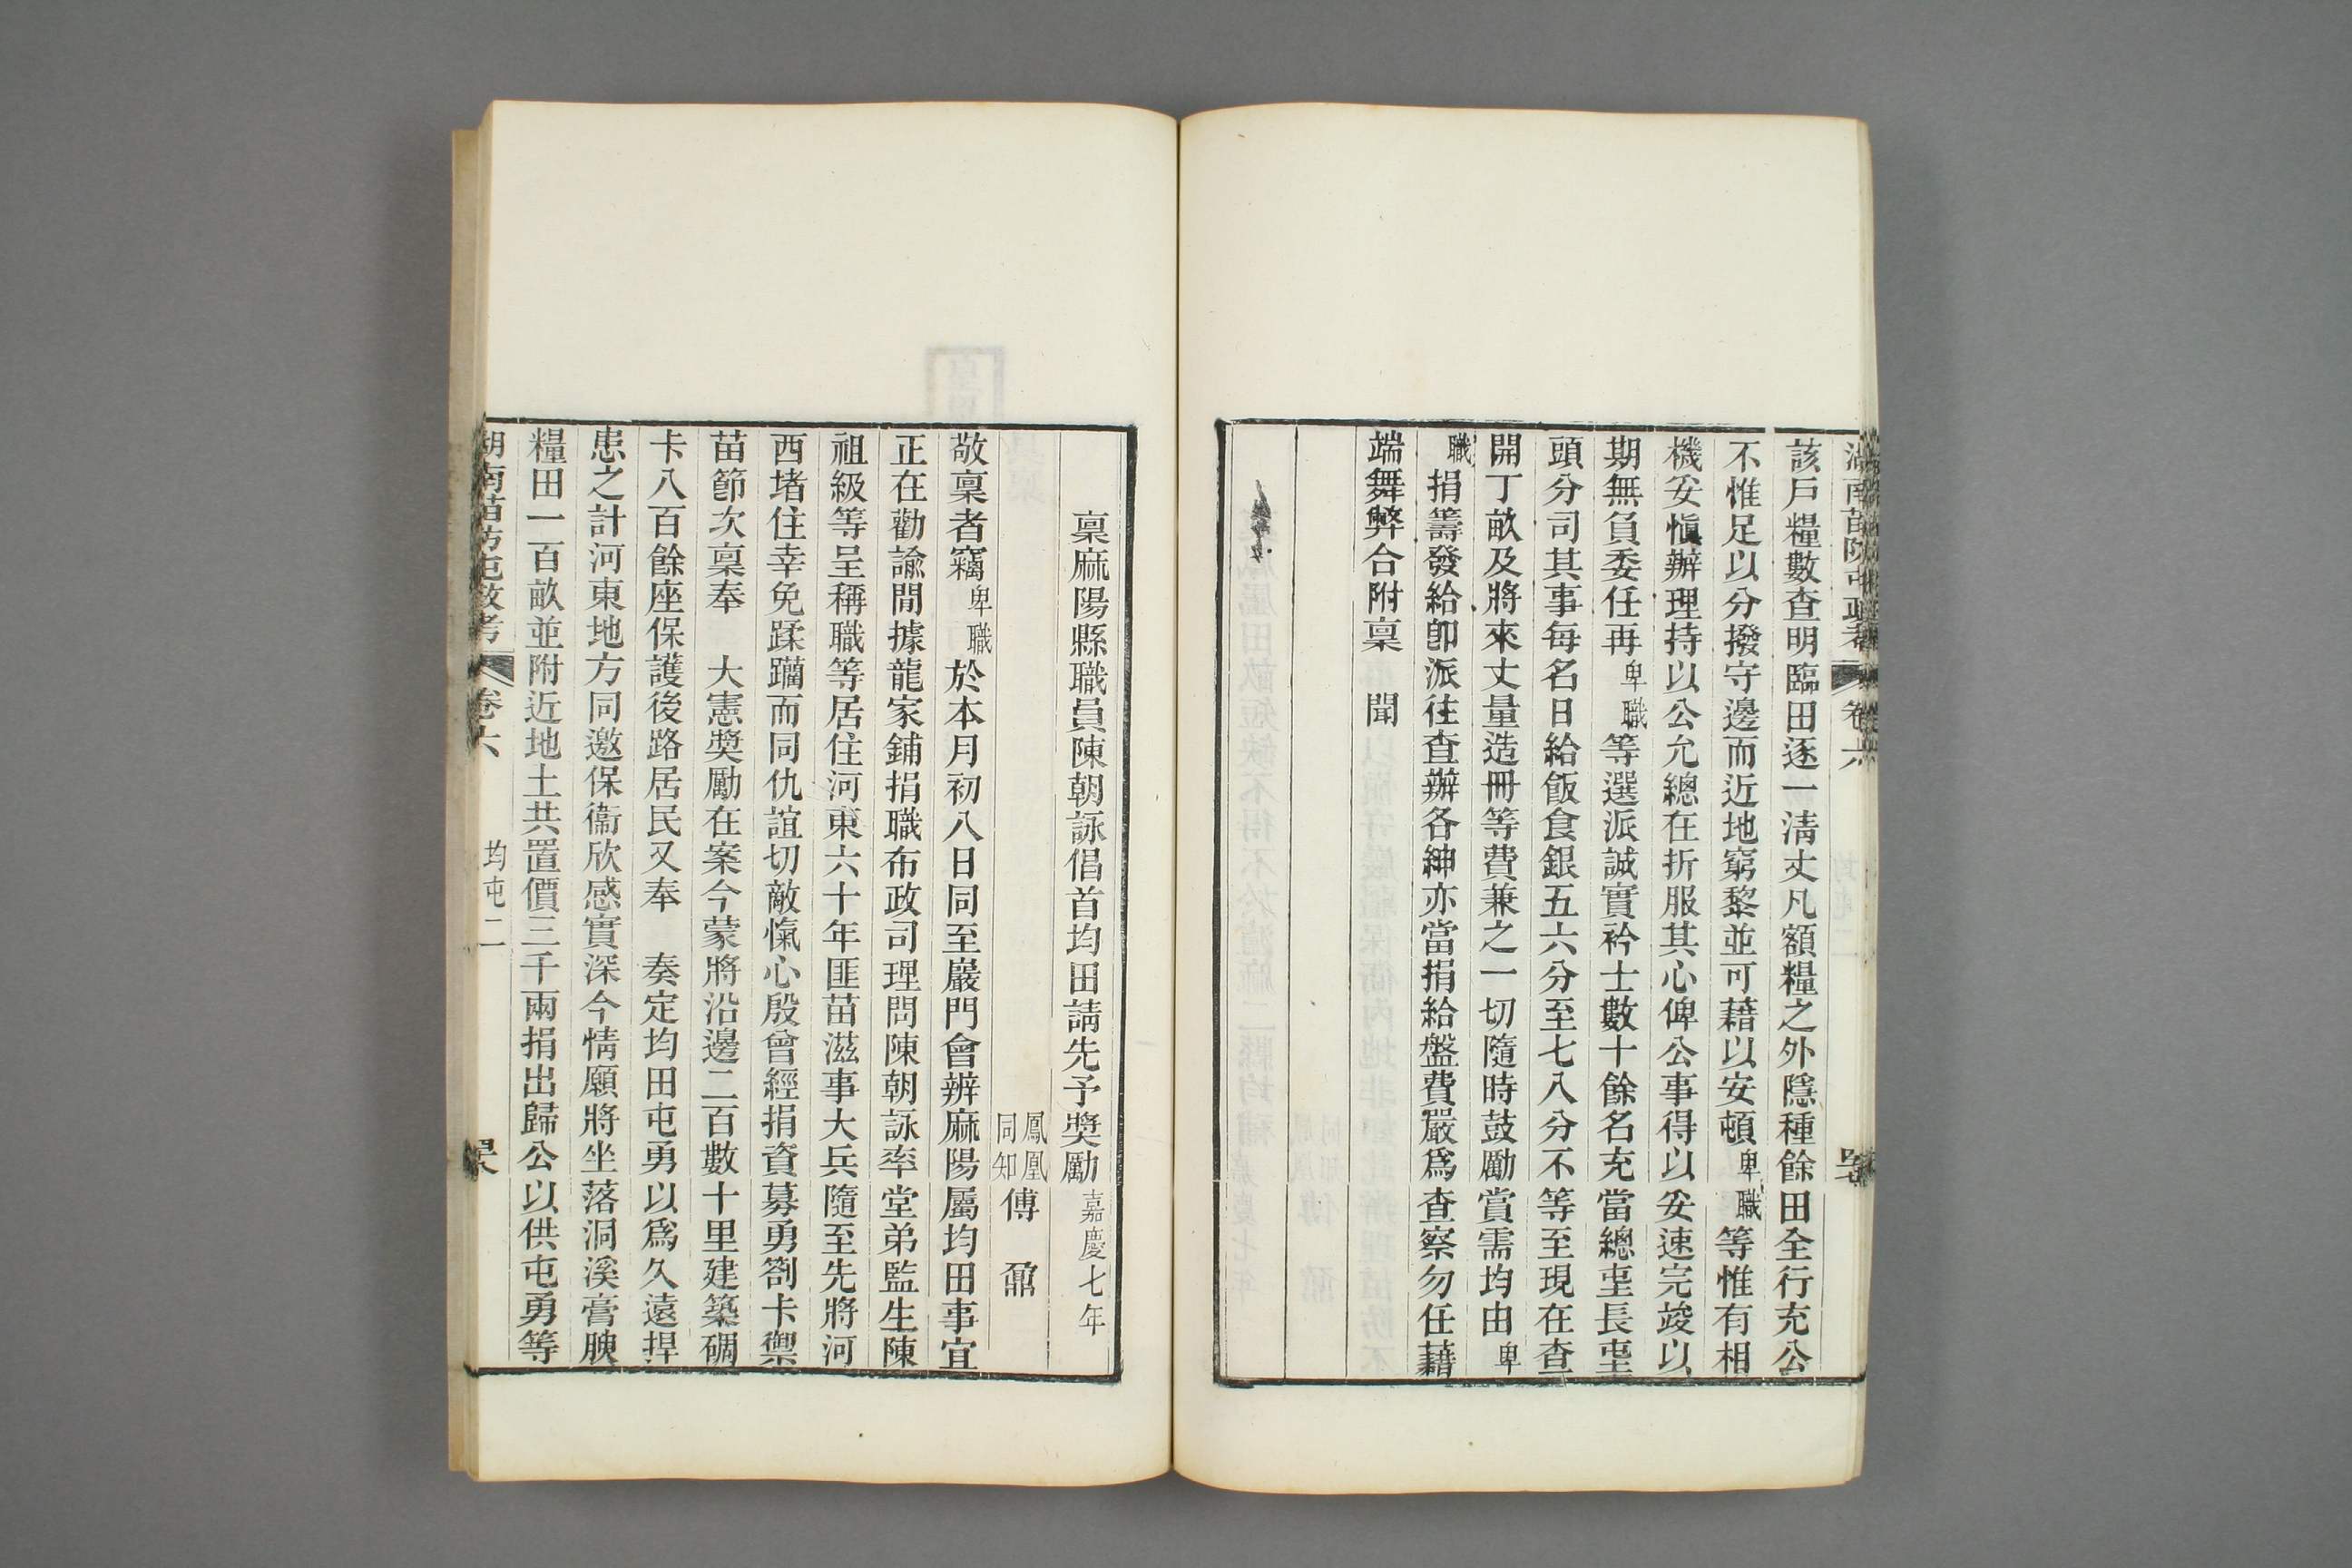 湖南苗防屯政考 卷六
該戶糧數查明臨田逐一清丈凡額糧之外隱種餘田全行充公
不惟足以分撥守邊而近地窮黎並可藉以安頓卑職等惟有相
機妥愼辦理持以公允總在折服其心俾公事得以妥速完竣以
期無負委任再卑職等選派誠實衿士數十餘名充當總屯長屯
頭分司其事每名日給飯食銀五六分至七八分不等至現在查
開丁畝及將來丈量造冊等費兼之一切隨時鼓勵賞需均由卑
職捐籌發給卽派往查辦各紳亦當捐給盤費嚴爲查察勿任藉
端舞弊合附稟 聞
稟麻陽縣職員陳朝詠倡首均田請先予奬勵 嘉慶七年
鳳凰同知傅 鼐
敬稟者竊卑職於本月初八日同至巖門會辦麻陽屬均田事宜
正在勸諭間據龍家鋪捐職布政司理問陳朝詠率堂弟監生陳
祖級等呈稱職等居住河東六十年匪苗滋事大兵隨至先將河
西堵住幸免蹂躪而同仇誼切敵愾心殷曾經捐資募勇劄卡禦
苗節次稟奉 大憲奬勵在案今蒙將沿邊二百數十里建築碉
卡八百餘座保護後路居民又奉 奏定均田屯勇以爲久遠捍
患之計河東地方同邀保衞欣感實深今情願將坐落洞溪膏腴
糧田一百畝並附近地土共置價三千兩捐出歸公以供屯勇等
湖南苗防屯政考 卷六 均屯二